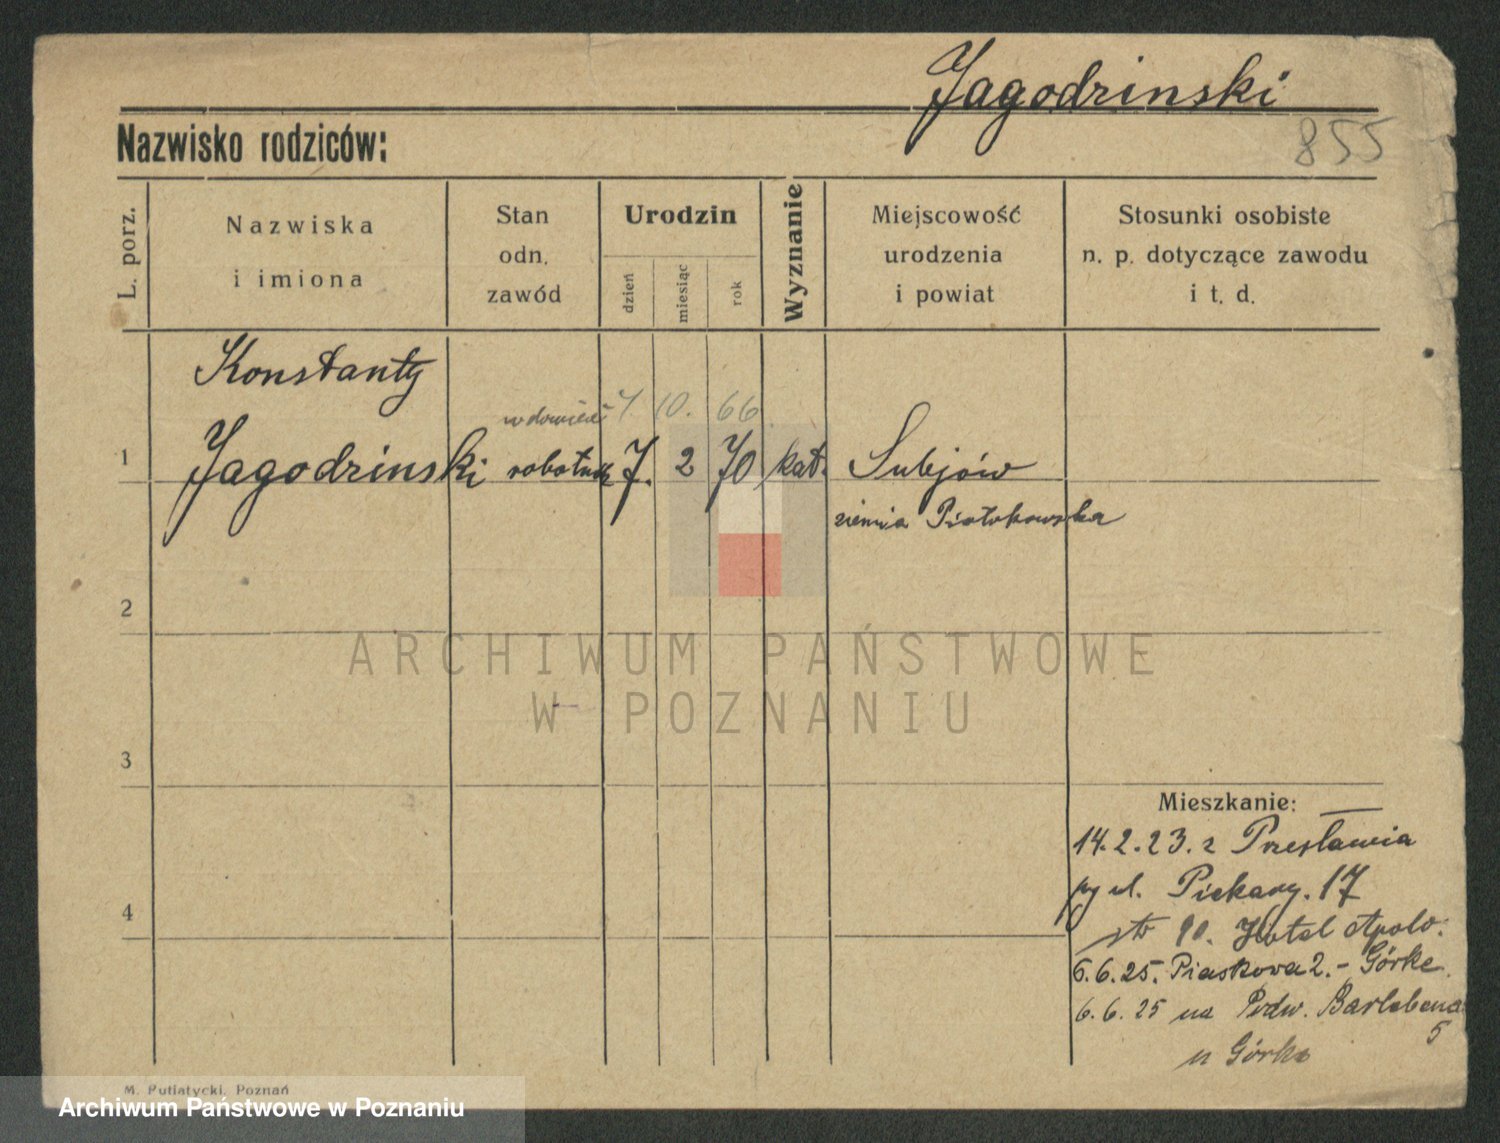 Jagodzinski
855
Nazwisko rodziców:
L. porz.
Nazwiska
i imiona
Stan
odn.
zawód
Urodzin
dzień
miesiąc
rok
Wyznanie
Miejscowość
urodzenia
i powiat
Stosunki osobiste
n. p. dotyczące zawodu
i t. d.
Konstanty
wdowiec 7. 10. 66
1 Jagodzinski robotnik 7. 2 70 kat. Sulejów
ziemia Piotrkowska
2
3
4
Mieszkanie:
14.2.23. z Przesławia
ul. Piekary. 17
90. Hotel Apolo.
6.6.25. Piaskowa 2. - Górke.
6.6.25 na Podw. Barlebena
5
u Górke
M. Putiatycki, Poznań
ARCHIWUM PAŃSTWOWE
W POZNANIU
Archiwum Państwowe w Poznaniu